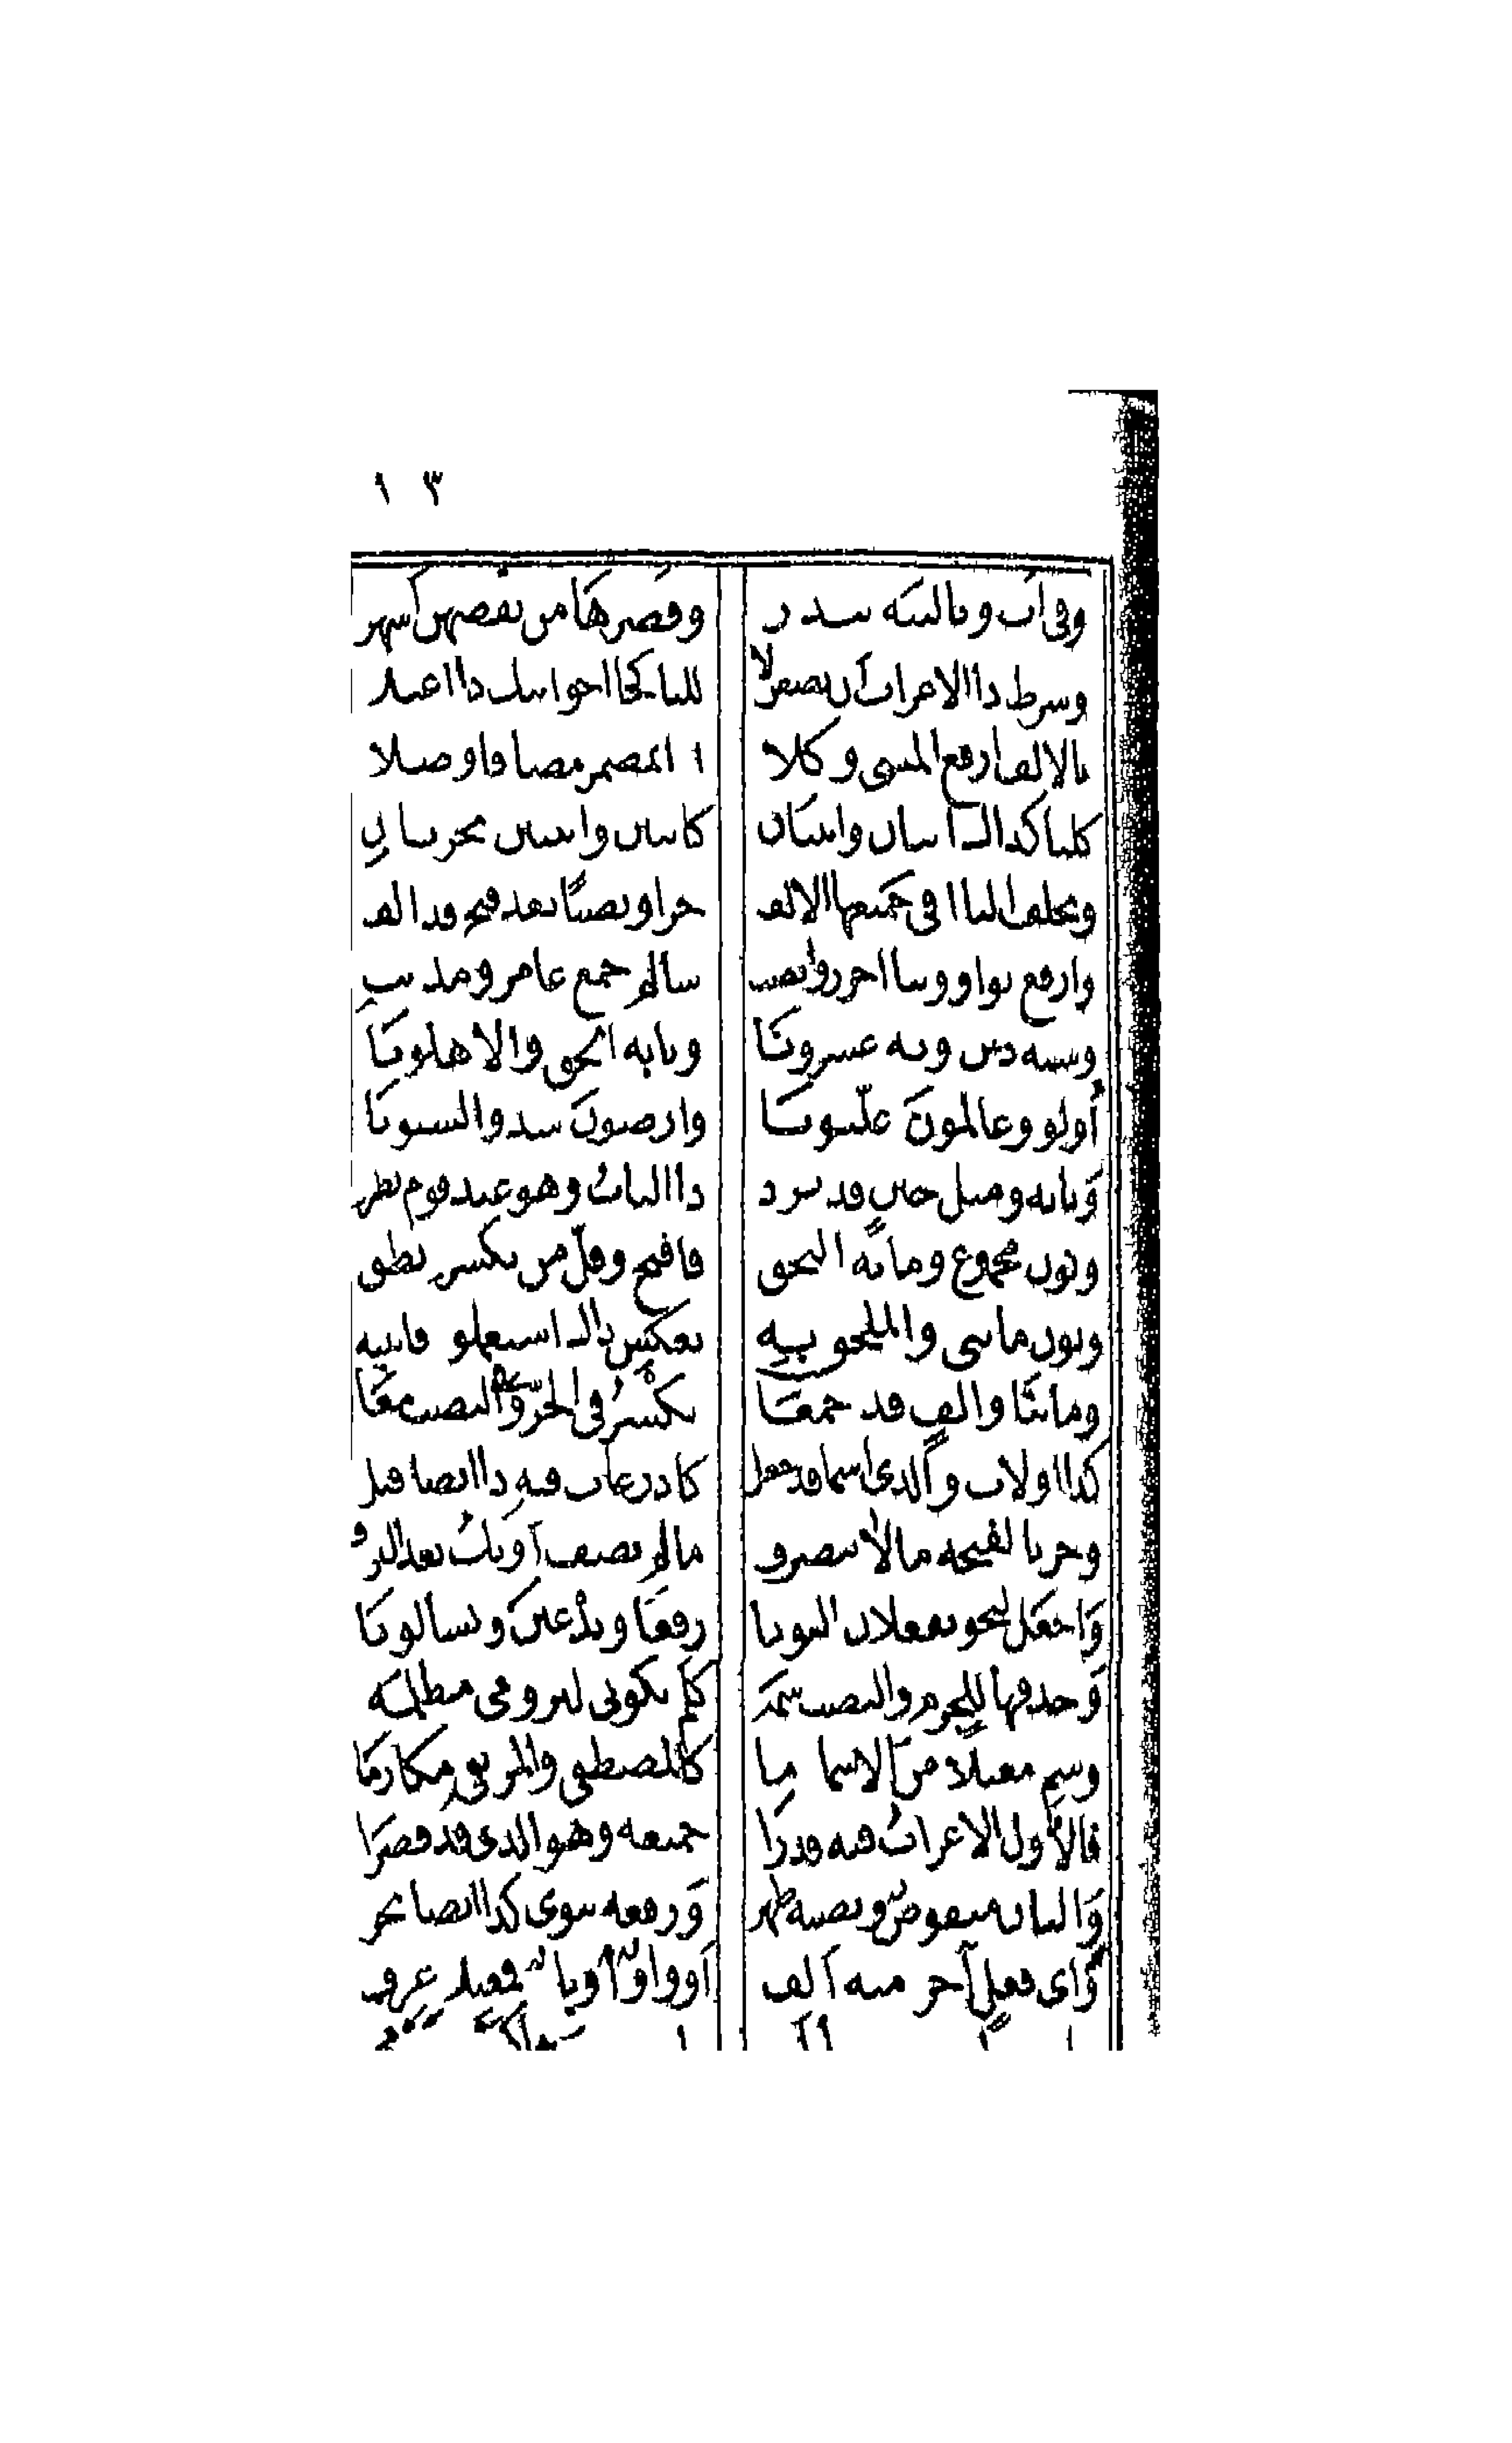 ١٣
وفي أب وتالييه يندر وقصرها من نقصهن أشهر
وشرط ذا الاعراب أن يضفن لا لليا كجا اخو ابيك ذا اعتلا
بالالف ارفع المثنى وكلا اذا بمضمر مضافا وصلا
كلتا كذاك اثنان واثنتان كابنين وابنتين يجريان
وتخلف اليا في جميعها الالف جرا ونصبا بعد فتح قد الف
وارفع بواو وبيا اجرر وانصب سالم جمع عامر ومذنب
وشبه ذين وبه عشرونا وبابه الحق والاهلونا
أولو وعالمون علّيونا وارضون شذ والسنونا
وبابه ومثل حين قد يرد ذا الباب وهو عند قوم يطرد
ونون مجموع وما به التحق فافتح وقلّ من بكسره نطق
ونون ما ثني والملحق به بعكس ذاك استعملوه فانتبه
وما بتا والف قد جمعا يكسر في الجرّ وفي النصب معا
كذا اولات والذي اسما قد جعل كاذرعات فيه ذا ايضا قبل
وجر بالفتحه ما لا ينصرف ما لم يضف أو يك بعد ال ردف
واجعل لنحو يفعلان النونا رفعا وتدعين وتسالونا
وحذفها للجزم والنصب سمه كلم تكوني لترومي مظلمه
وسم معتلا من الاسما ما كالمصطفى والمرتقي مكارما
فالأول الاعراب فيه قدرا جميعه وهو الذي قد قصرا
والثان منقوص ونصبه ظهر ورفعه ينوى كذا ايضا يجر
وأي فعل آخر منه ألف أو واو أو ياء فمعتلا عرف